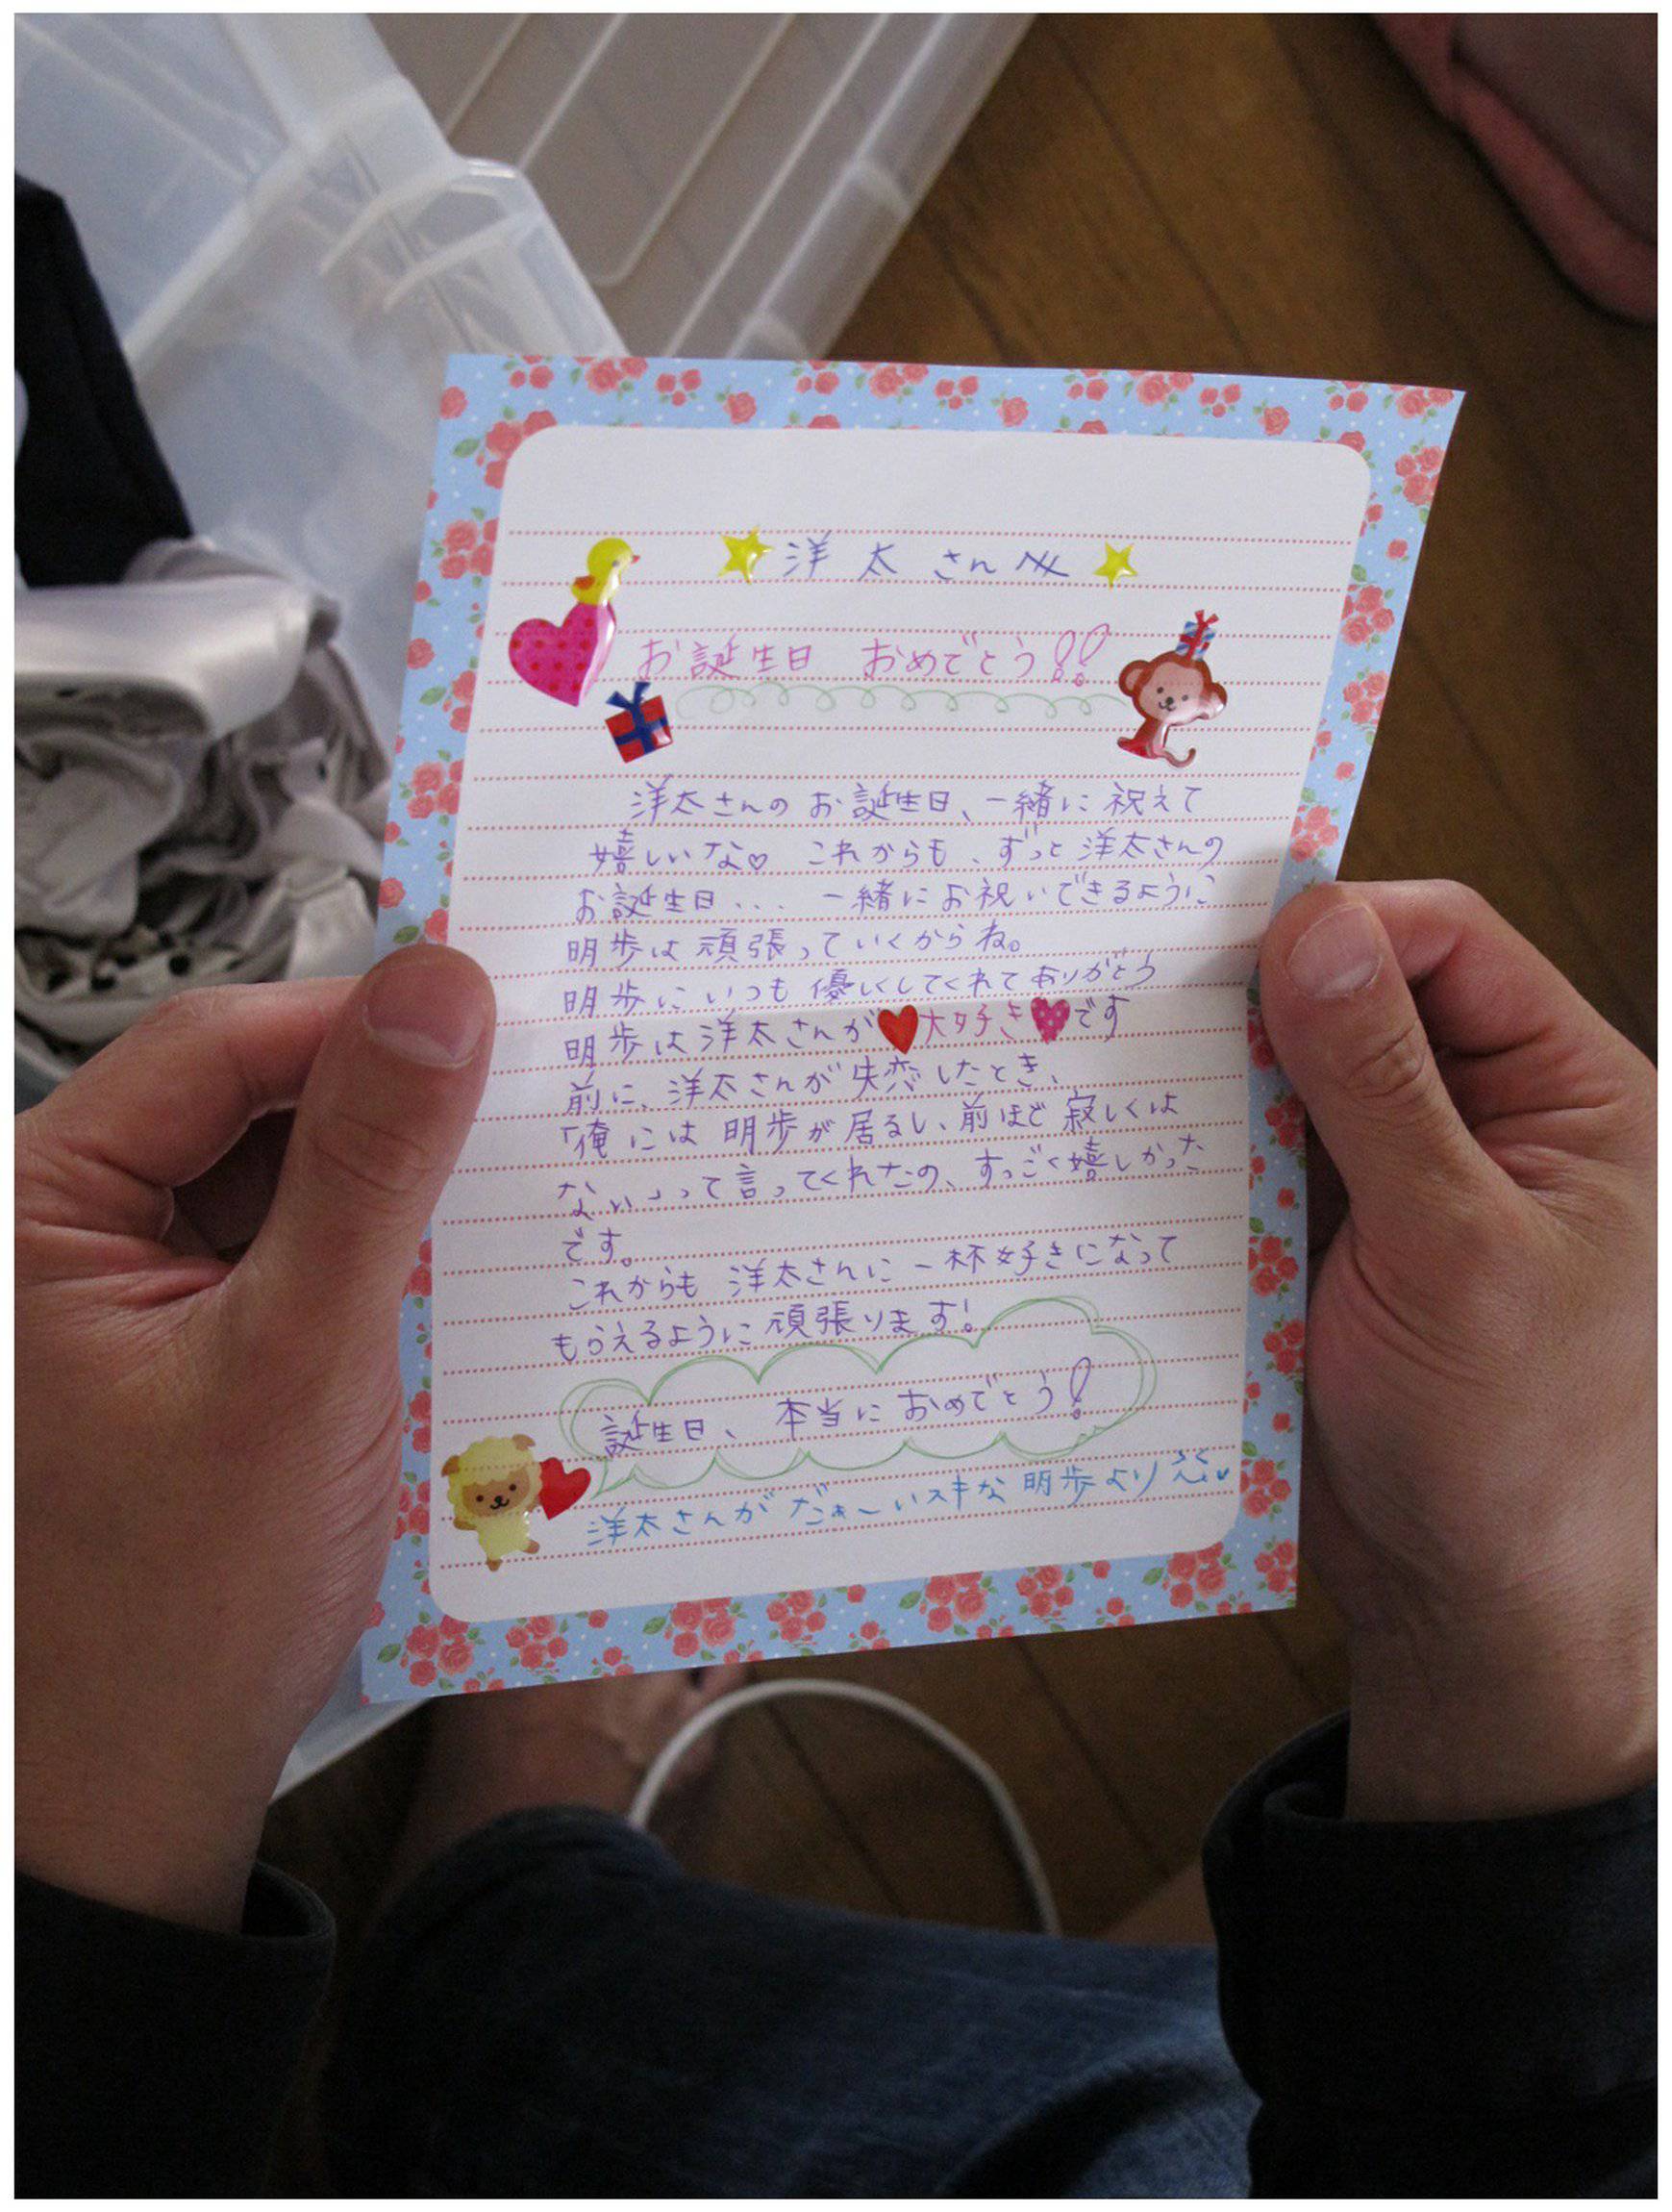 洋太さんへ
お誕生日 おめでとう!!
洋太さんのお誕生日、一緒に祝えて
嬉しいな♡ これからも、ずっと洋太さんの
お誕生日... 一緒にお祝いできるように
明歩は頑張っていくからね。
明歩にいつも優しくしてくれてありがとう
明歩は洋太さんが大好きです
前に、洋太さんが失恋したとき、
「俺には明歩が居るし、前ほど寂しくは
ない」って言ってくれたの、すっごく嬉しかった
です。
これからも 洋太さんに一杯好きになって
もらえるように頑張ります!
誕生日、本当におめでとう!
洋太さんがだぁーいスキな明歩より